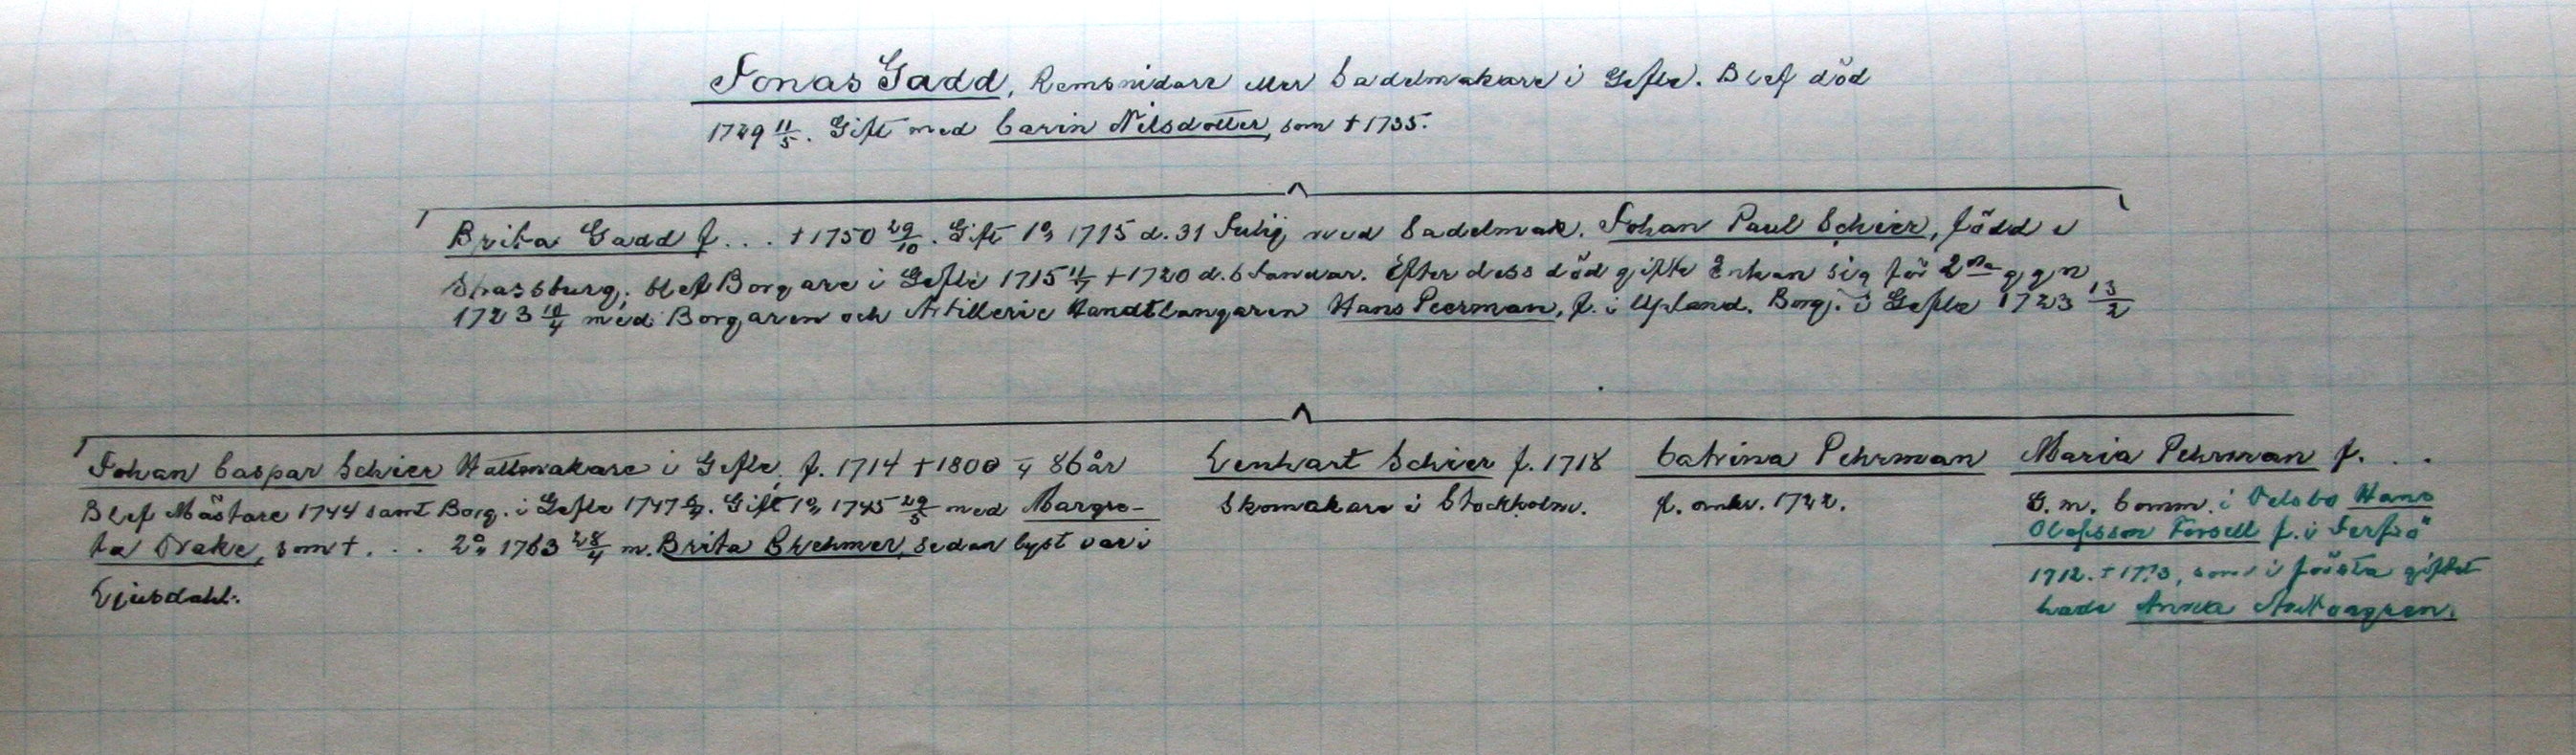 Jonas Gadd, Remsnidare eller Sadelmakare i Gefle. Blef död
1729 11/5. Gift med Carin Nilsdotter, som † 1735.
Brita Gadd f... † 1750 29/10. Gift 1o, 1715 d. 31 Julij med Sadelmak. Johan Paul Schier, född i
Strassburg; blef Borgare i Gefle 1715 † 1720 d. 6 Januar. Efter dess död gifte Enkan sig för 2dra ggn
1723 /4 med Borgaren och Artillerie Handtlangaren Hans Peerman, f. i Upland. Borg. i Gefle 1723 13/2
Johan Caspar Schier Hattmakare i Gefle, f. 1714 † 1800 /4 86 år
Blef Mästare 1744 samt Borg. i Gefle 1747. Gift 1o, 1745 29/5 med Margre-
ta Drake, som †... 2o, 1763 28/4 m. Brita Brehmer, sedan lyst var i
Ljusdahl.
Lenhart Schier f. 1718
Skomakare i Stockholm.
Catrina Pehrman
f. omkr. 1722.
Maria Pehrman f. ...
G. m. Comm. i Delsbo Hans
Olofsson Forsell f. i Jerfsö
1712. †, som i första giftet
hade Anna